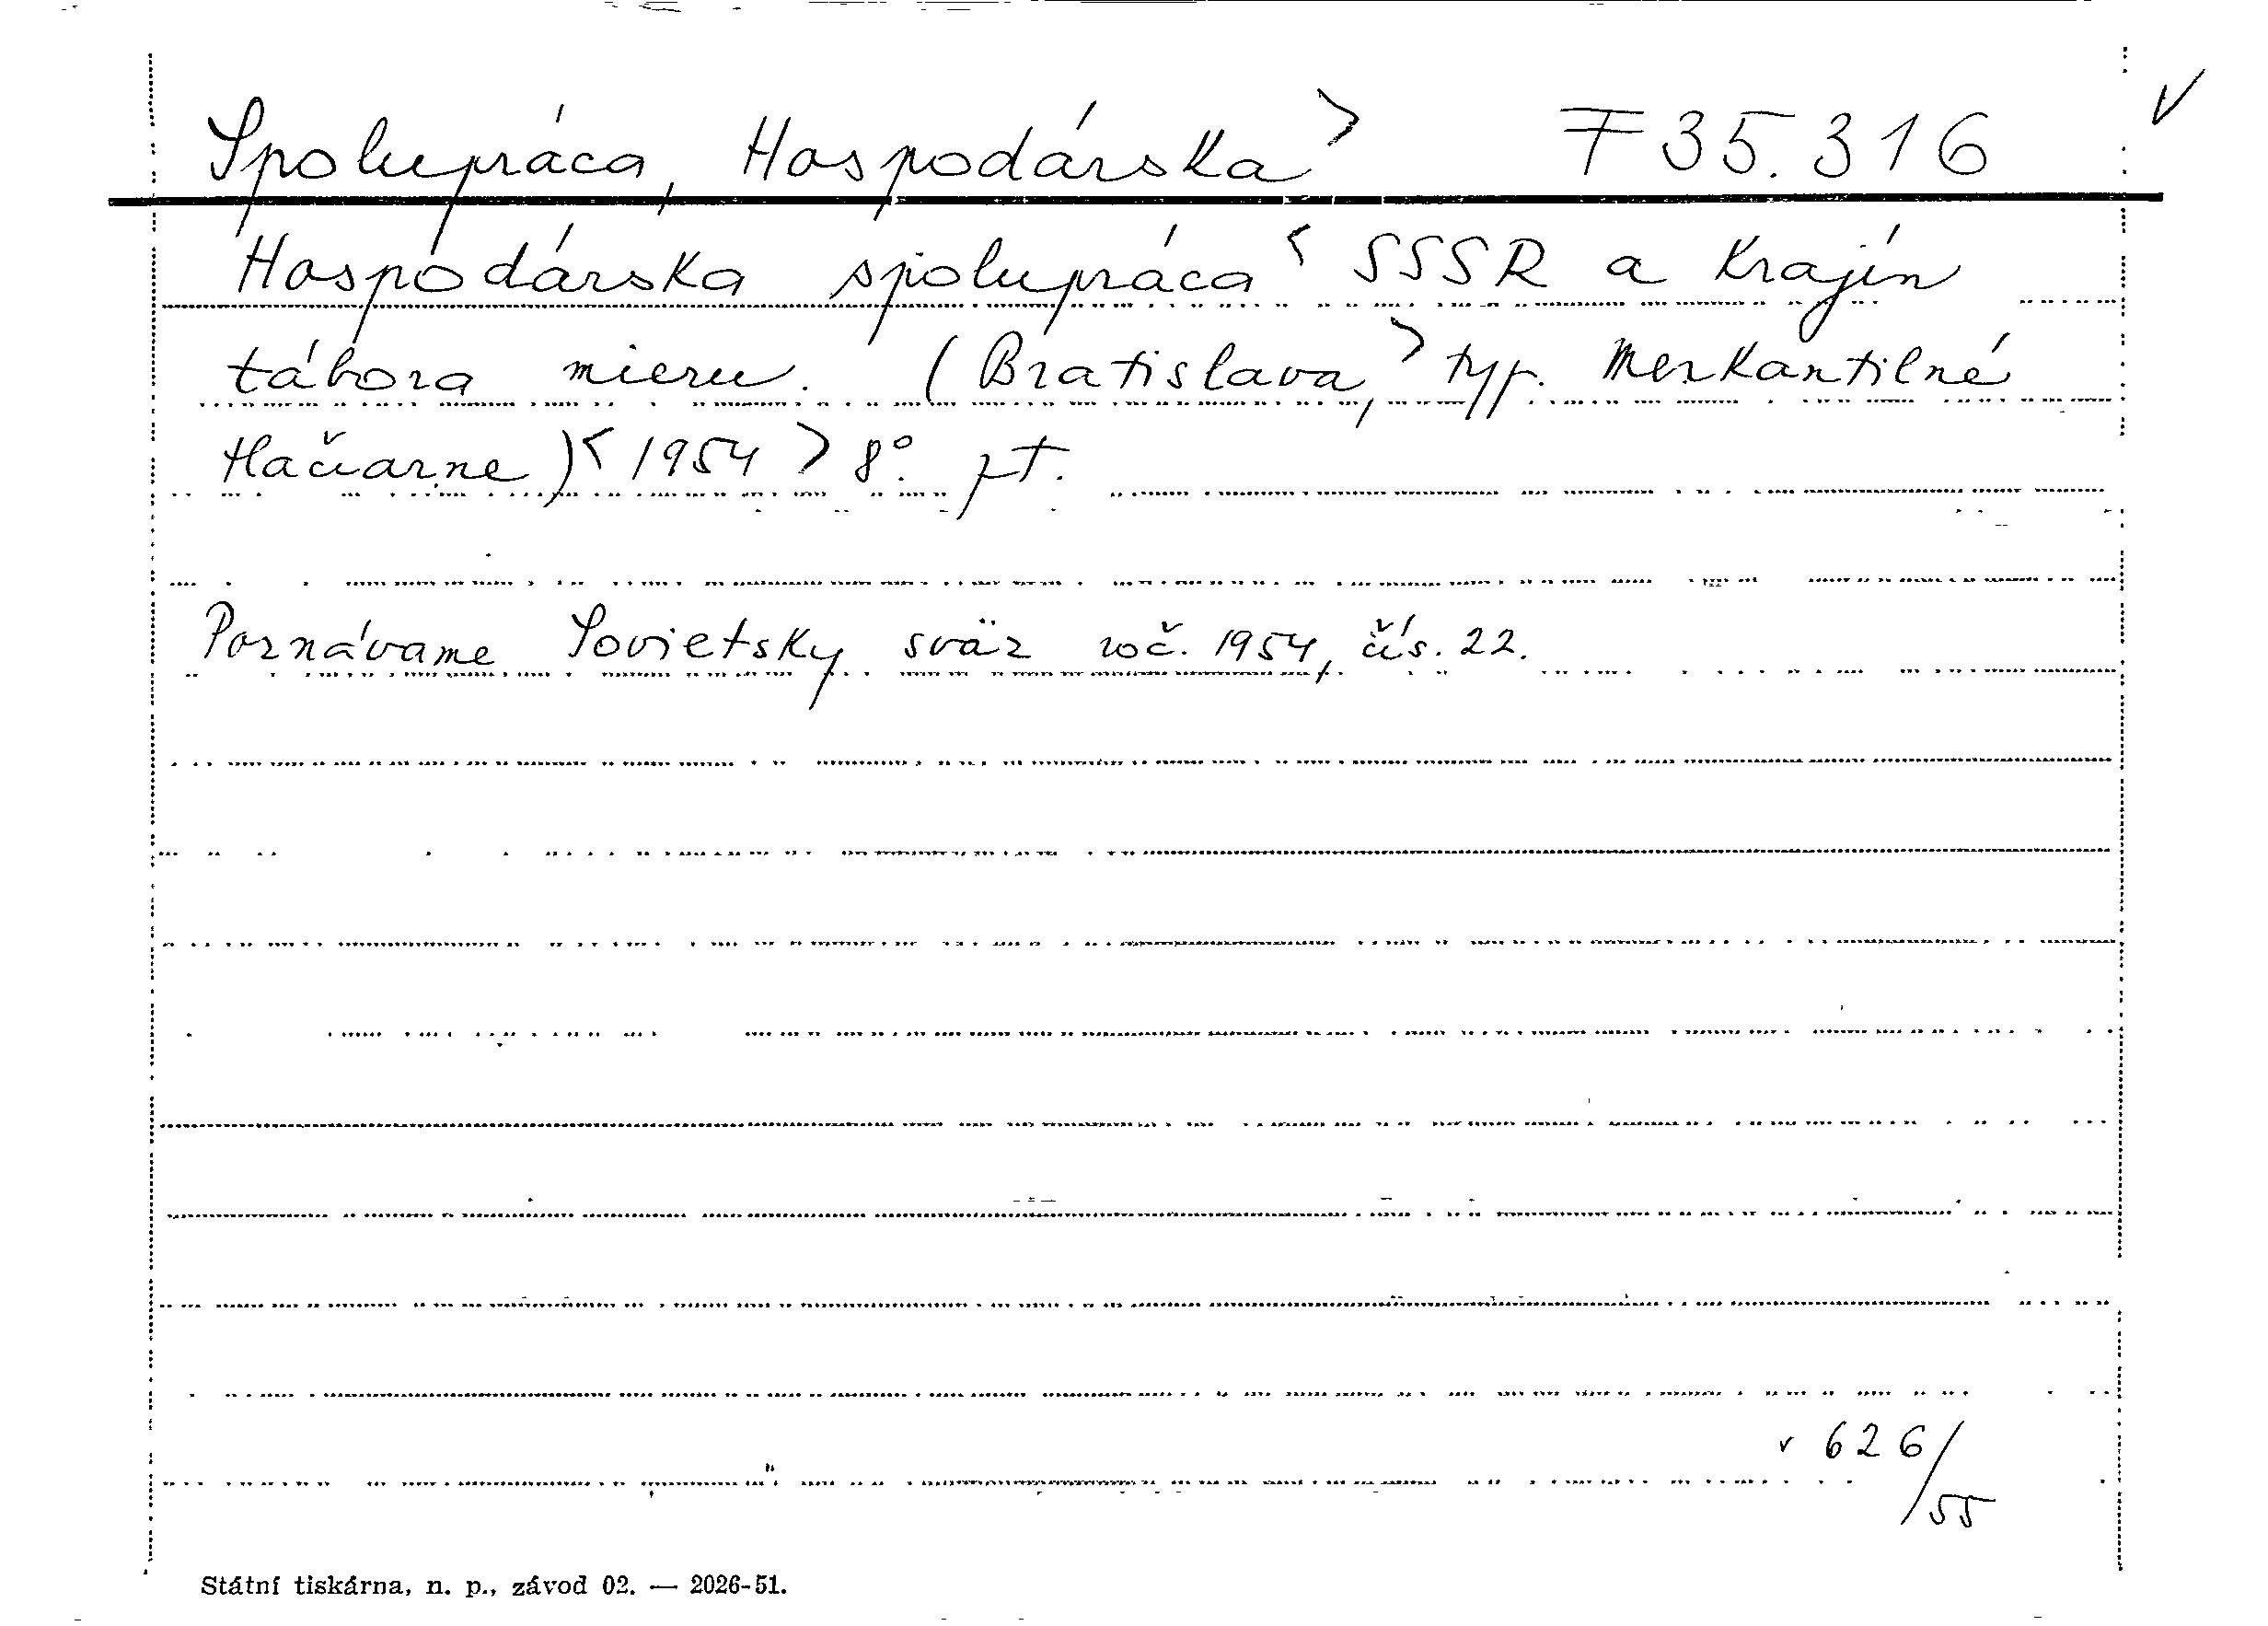 Spolupráca, Hospodárska > F 35.316 ✓
Hospodárska spolupráca < SSSR a krajín
tábora mieru. (Bratislava, > typ. Merkantilné
tlačiarne) < 1954 > 8°. pt.
Poznávame Sovietsky sväz roč. 1954, čís. 22.
v 626/55
Státní tiskárna, n. p., závod 02. — 2026-51.